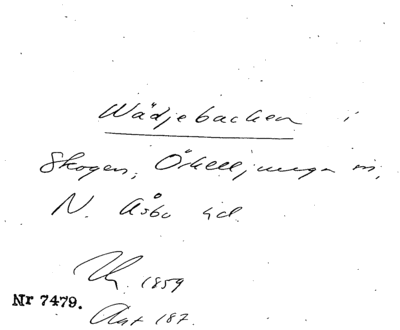 Wädjebacken i
Skogen, Örkelljunga sn,
N. Åsbo hd.
1859
Nr 7479.
Akt 187.